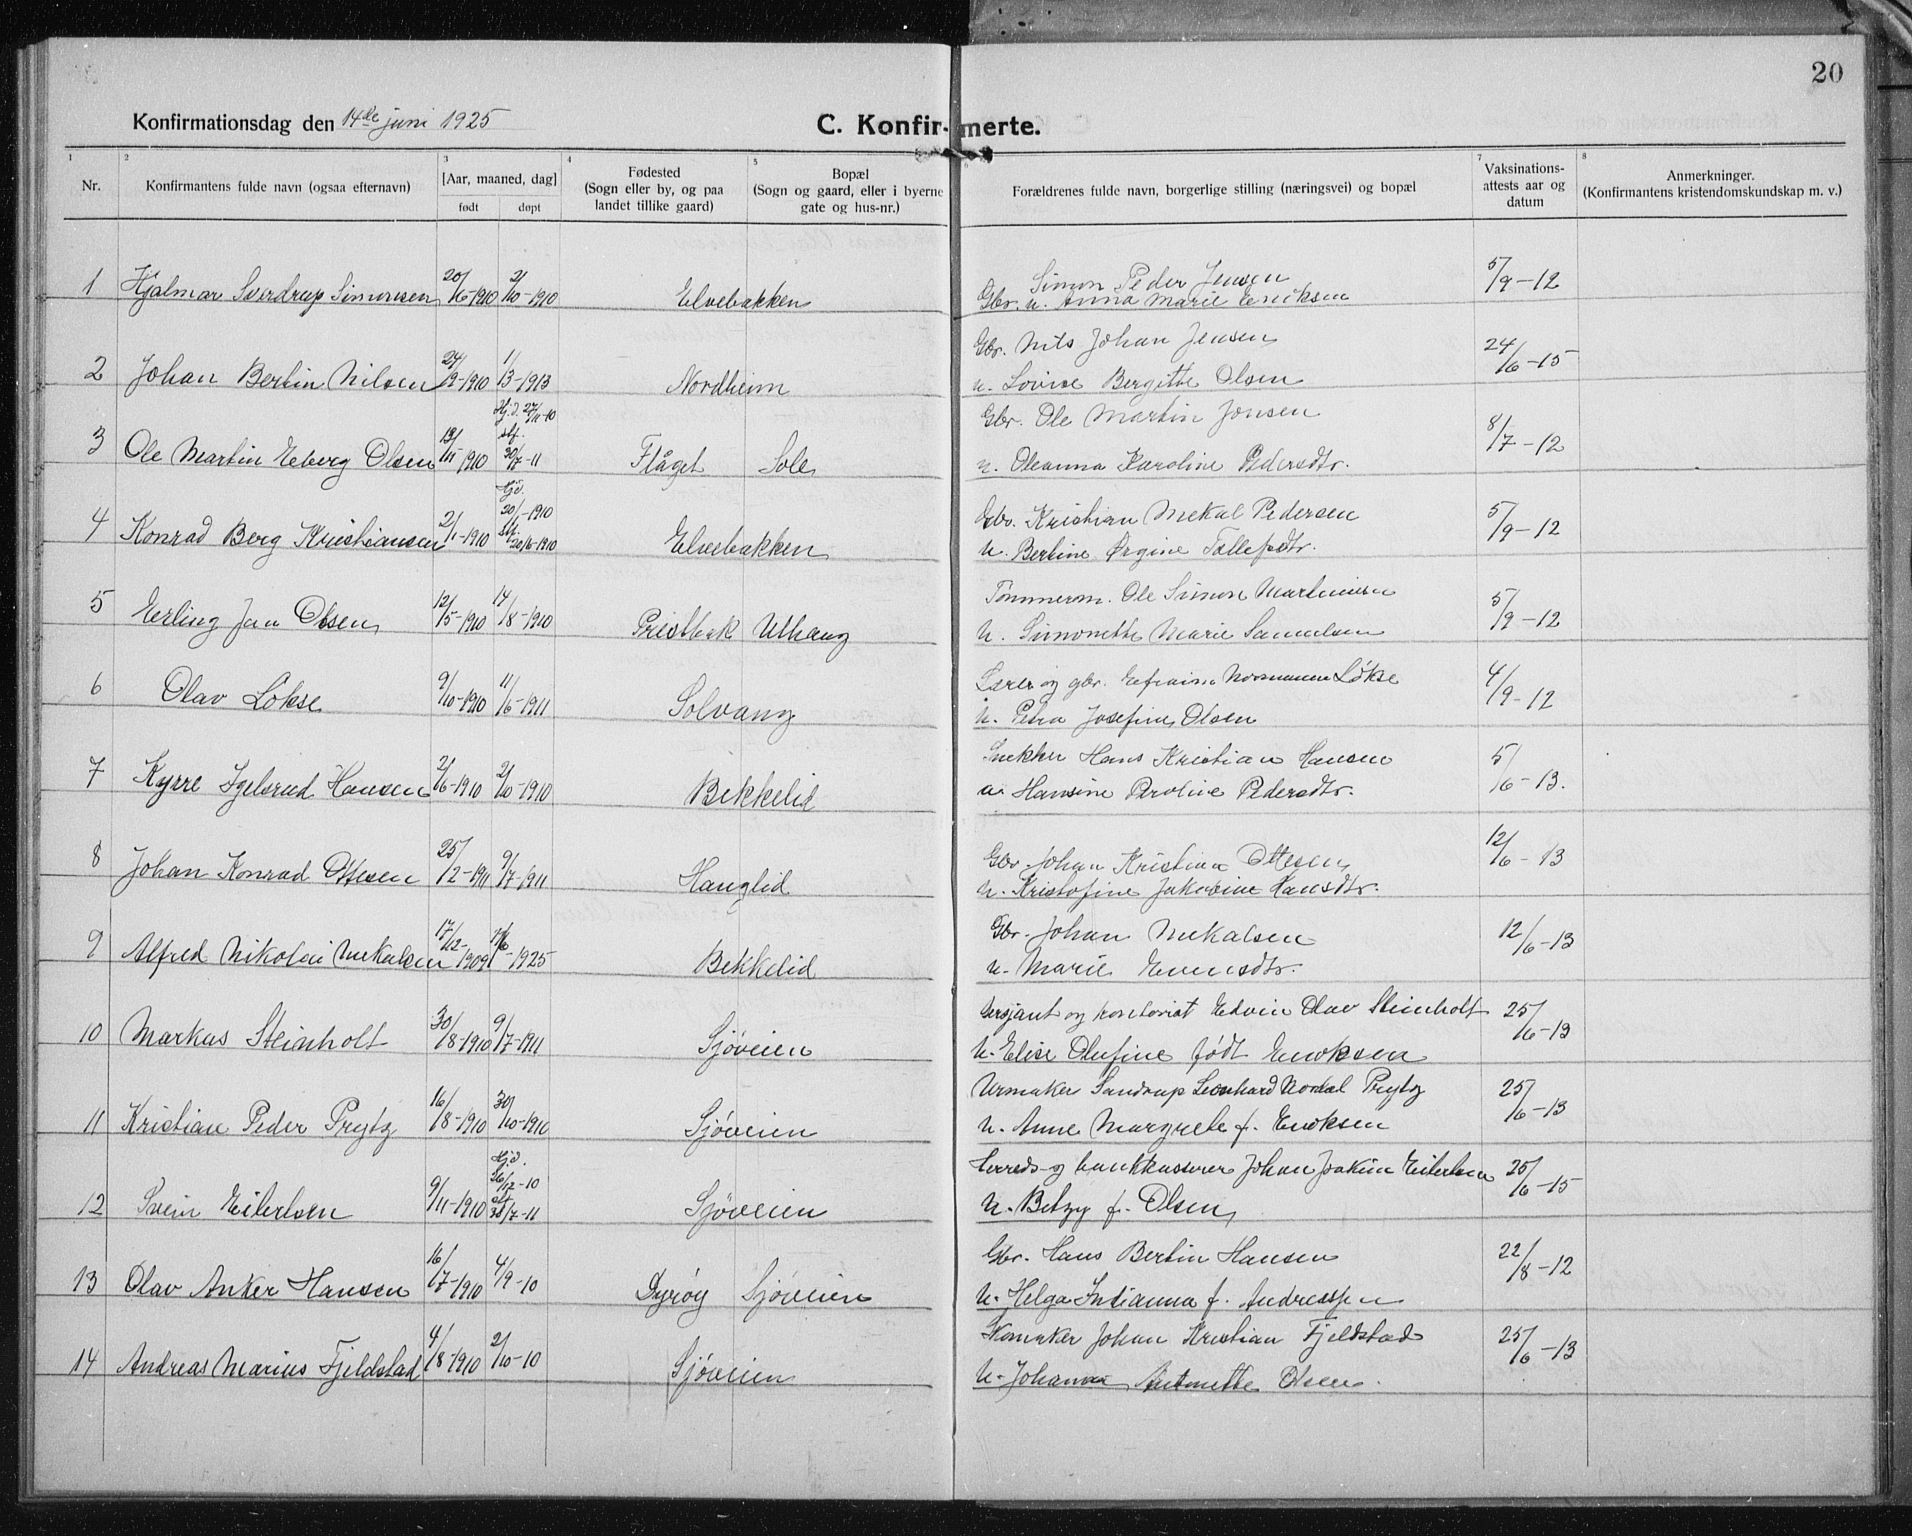 20
Konfirmationsdag den 14de juni 1925
C. Konfirmerte.
1 2 3 4 5 7 8
Nr. Konfirmantens fulde navn (ogsaa efternavn) [Aar, maaned, dag] født døpt Fødested (Sogn eller by, og paa landet tillike gaard) Bopæl (Sogn og gaard, eller i byerne gate og hus-nr.) Forældrenes fulde navn, borgerlige stilling (næringsvei) og bopæl Vaksinations-attests aar og datum Anmerkninger. (Konfirmantens kristendomskundskap m. v.)
1 Hjalmar Sverdrup Simonsen 20/6-1910 2/10-1910 Elvebakken Simon Peder Jensen 5/9-12
Gbr. u. Anna Marie Eriksen
2 Johan Bertin Nilsen 24/9-1910 1/3-1913 Nordheim Gbr. Nils Johan Jensen 24/6-15
u. Lovise Bergitte Olsen
3 Ole Martin Eeberg Olsen 13/11 1910 Hj.d. 27/11-10 stf. 30/7-11 Flåget Sole Gbr. Ole Martin Jonsen 8/7-12
u. Oleanna Karoline Pedersdtr.
4 Konrad Berg Kristiansen 2/1-1910 Hjd. 20/1-1910 stf. 20/6-1910 Elvebakken Gbr. Kristian Mekal Pedersen 5/9-12
u. Bertine Ørgine Tollefsdtr.
5 Erling Jan Olsen 12/5-1910 14/8-1910 Prestbak Uthaug Tømmerm. Ole Simon Martinusen 5/9-12
u. Simonette Marie Samuelsen
6 Olav Løkse 9/10-1910 11/6-1911 Solvang Lærer og gbr. Efraim Normann Løkse 4/9-12
u. Petra Josefine Olsen
7 Kyrre Igelsrud Hansen 2/6-1910 2/10-1910 Bekkelid Snekker Hans Kristian Hansen 5/6-13.
u. Hansine Paroline Pedersdtr.
8 Johan Konrad Ottesen 25/2-1911 9/7-1911 Hauglid Gbr. Johan Kristian Ottesen 12/6-13
u. Kristofine Jakobine Hansdtr.
9 Alfred Nikolai Mekalsen 17/12-1909 -1925 Bekkelid Gbr. Johan Mekalsen 12/6-13
u. Marie Evensdtr.
10 Markus Steinholt 30/8-1910 9/7-1911 Sjøveien Sersjant og kontorist Edvin Olav Steinholt 25/6-13
u. Elise Olufine født Enoksen
11 Kristian Peder Prytz 16/8-1910 30/10-1910 Sjøveien Urmaker Sandrup Leonhard Prytz 25/6-13
u. Anne Margrete f. Enoksen
12 Svein Eilertsen 9/11-1910 Hjd. 26/12-10 stf. 30/7-11 Sjøveien Herreds- og bankkasserer Johan Joakim Eilertsen 25/6-15
u. Betzy f. Olsen
13 Olav Anker Hansen 16/7-1910 4/9-10 Dyrøy Sjøveien Gbr. Hans Bertin Hansen 22/8-12
u. Helga Indianna f. Andreassen
14 Andreas Marius Fjeldstad 4/8-1910 2/10-10 Sjøveien Skomaker Johan Kristian Fjeldstad 25/6-13
u. Johanna Antonette Olsen.